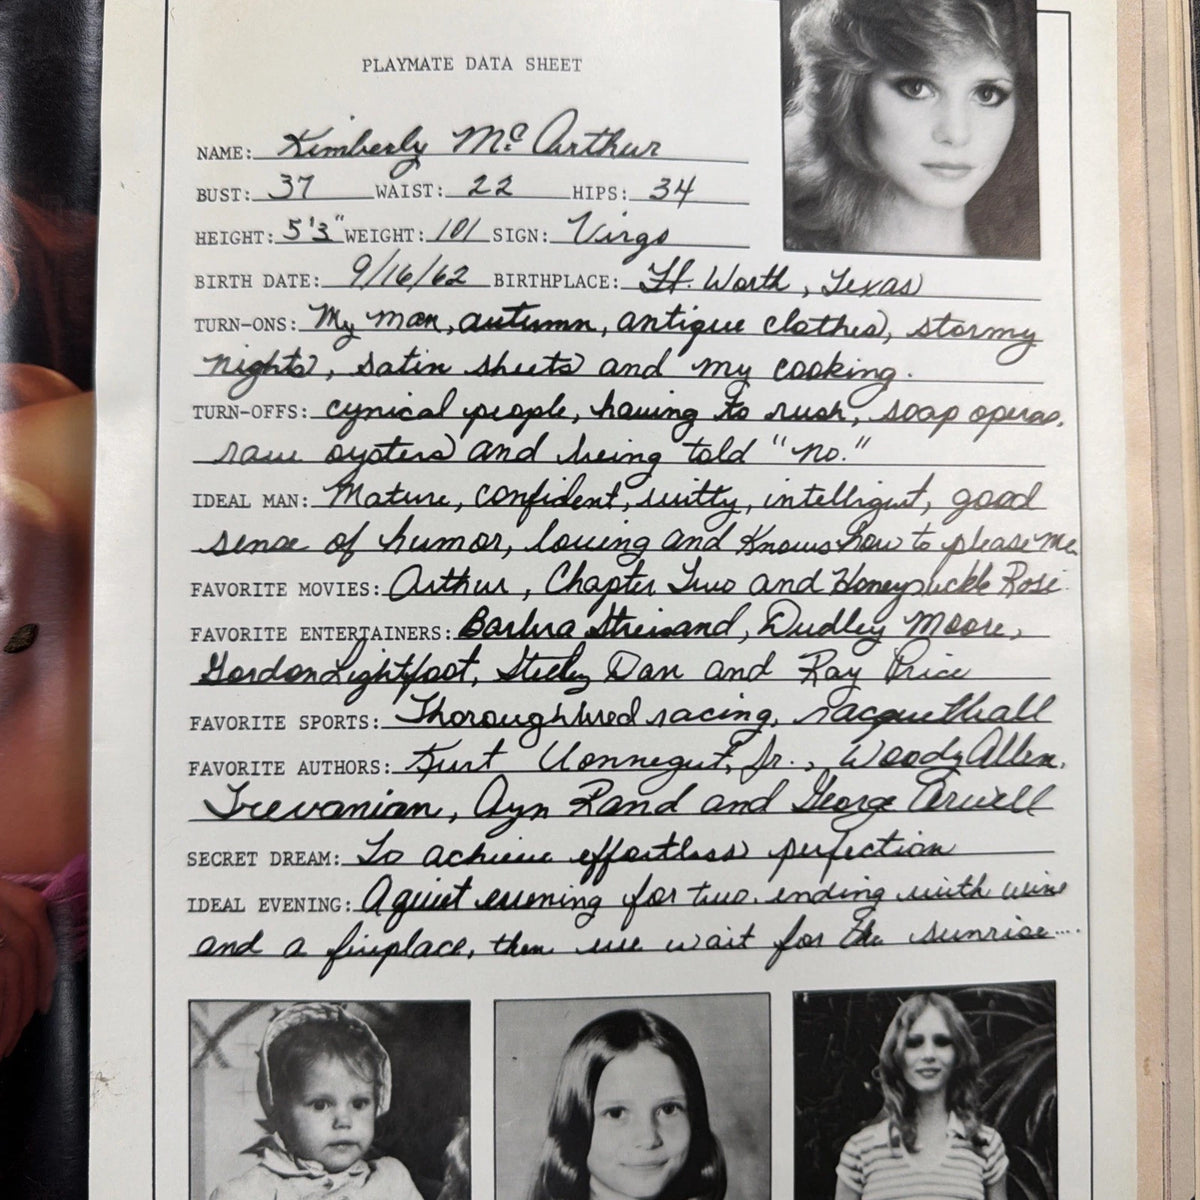 PLAYMATE DATA SHEET
NAME: Kimberly McArthur
BUST: 37 WAIST: 22 HIPS: 34
HEIGHT: 5'3" WEIGHT: 101 SIGN: Virgo
BIRTH DATE: 9/16/62 BIRTHPLACE: Ft. Worth, Texas
TURN-ONS: My man, autumn, antique clothes, stormy
nights, satin sheets and my cooking.
TURN-OFFS: cynical people, having to rush, soap operas,
raw oysters and being told "no."
IDEAL MAN: Mature, confident, witty, intelligent, good
sense of humor, loving and knows how to please me
FAVORITE MOVIES: Arthur, Chapter Two and Honeysuckle Rose.
FAVORITE ENTERTAINERS: Barbra Streisand, Dudley Moore,
Gordon Lightfoot, Steely Dan and Ray Price
FAVORITE SPORTS: Thoroughbred racing, racquetball
FAVORITE AUTHORS: Kurt Vonnegut, Jr., Woody Allen,
Trevanian, Ayn Rand and George Orwell
SECRET DREAM: To achieve effortless perfection
IDEAL EVENING: A quiet evening for two, ending with wine
and a fireplace, then we wait for the sunrise....